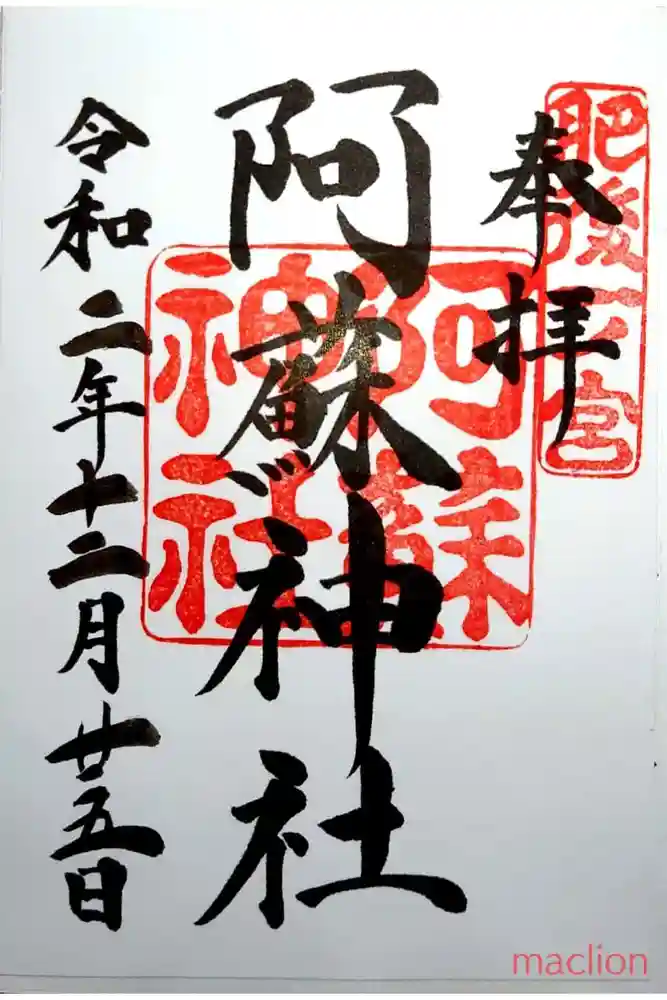 奉拝
肥後一之宮
阿蘇神社
阿蘇神社
令和二年十二月廿五日
maclion